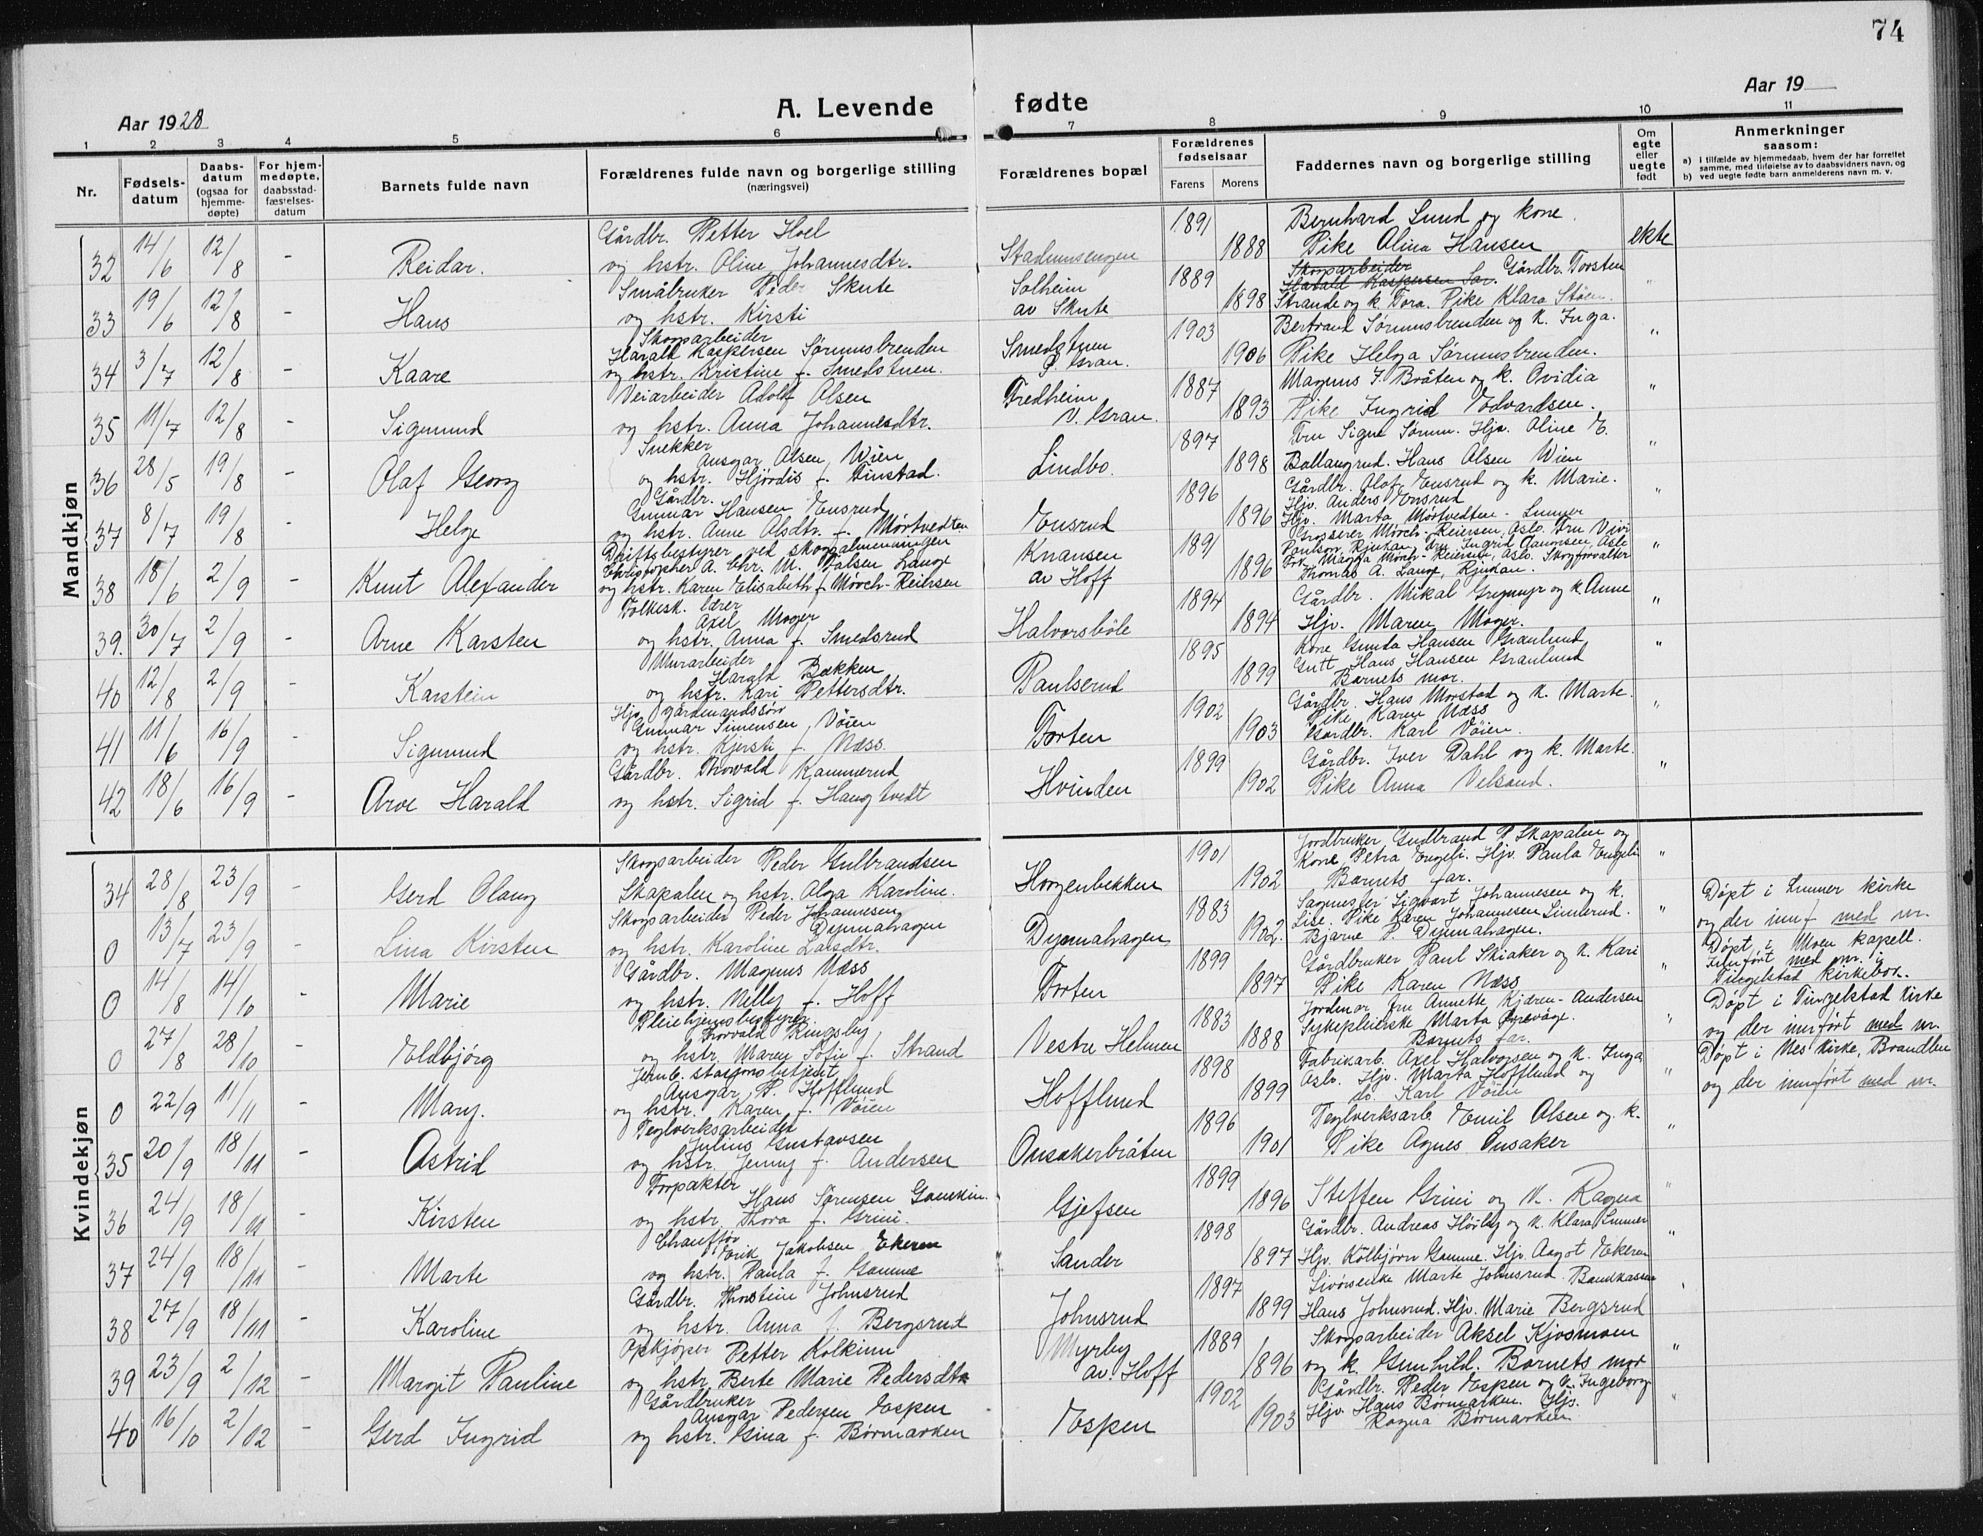 74
Aar 1928
A. Levende fødte
Aar 19
1 2 3 4 5 6 7 8 9 10 11
Nr.
Fødsels-datum
Daabs-datum (ogsaa for hjemme-døpte)
For hjem-medøpte, daabsstad-fæstelses-datum
Barnets fulde navn
Forældrenes fulde navn og borgerlige stilling (næringsvei)
Forældrenes bopæl
Forældrenes fødselsaar
Farens Morens
Faddernes navn og borgerlige stilling
Om egte eller uegte født
Anmerkninger saasom:
a) I tilfælde av hjemmedaab, hvem der har forrettet samme, med tilføielse av to daabsvidners navn, og
b) ved uegte fødte barn anmelderens navn m. v.
Mandkjøn
32 14/6 12/8 - Reidar. Gårdbr. Petter Hoel og hstr. Oline Johannesdtr. 1891 1888 Bernhard Lund og kone. Pike Alina Hansen ekte
33 19/6 12/8 - Hans Småbruker Peder Skute og hstr. Kirsti Solheim av Skute 1889 1898 Skogarbeider Harald Kaspersen Sør. Gårdbr. Torsten Strande og k. Tora. Pike Klara Støen. "
34 3/7 12/8 - Kaare Skogarbeider Harald Kaspersen Sørumsbrenden og hstr. Kristine f. Smedstuen. Smedstuen Ø. Gran. 1903 1906 Bertrand Sørumsbrenden og k. Inga. Pike Helga Sørumsbrenden. "
35 11/7 12/8 - Sigmund Veiarbeider Adolf Olsen og hstr. Anna Johannesdtr. Fredheim V. Gran. 1887 1893 Magnus J. Bråten og k. Ovidia Pike Ingrid Edvardsen. "
36 28/5 19/8 - Olaf Georg Snekker Ansgar Olsen Wien og hstr. Hjördis f. Finstad. Lindbo. 1897 1898 Fru Signe Sørum. Hjv. Oline E. Ballangrud. Hans Olsen Wien "
37 8/7 19/8 - Helge Gårdbr. Gunnar Hansen Ensrud og hstr. Anne Olsdtr. f. Mörtvedten Ensrud 1896 1896 Gårdbr. Olof Ensrud og k. Marie. Hjv. Anders Ensrud Hjv. Marta Mörtvedten - Lunner "
38 18/6 2/9 - Knut Alexander Driftsbestyrer ved skogalmenningen Christopher A. Chr. M. Lange og hstr. Karen Elisabeth f. Mörch-Reiersen Knansen av Hoff 1891 1896 Grosserer Mörch-Reiersen, Oslo. Fru Rjukan, Fru Ingrid Oslo Frk. Magga Mörch-Reiersen, Oslo. Skogforvalter Thomas A. Lange, Rjukan. "
39. 30/7 2/9 - Arne Karsten Folkesk. lærer Axel Moger og hstr. Anna f. Smedsrud Halvorsböle 1894 1894 Gårdbr. Mikal Grymyr og k. Anne Hjv. Maren Moger. "
40 12/8 2/9 - Karstein Murarbeider Harald Bækken og hstr. Kari Pettersdtr. Paulserud 1895 1899 Kone Gunda Hansen Granlund, Gutt Hans Hansen Granlund Barnets mor. "
41 11/6 16/9 - Sigmund Hjv. gårdmandssön Gunnar Simensen Vöien og hstr. Kjersti f. Næss Torten 1902 1903 Gårdbr. Hans Morstad og k. Marte. Pike Karen Næss Gårdbr. Karl Vöien. "
42 18/6 16/9 - Arve Harald Gårdbr. Thorvald Kammerud og hstr. Sigrid f. Haugtvedt Hvinden 1899 1902 Gårdbr. Iver Dahl og k. Marte. Pike Anna Velsand. "
Kvindekjøn
34 28/8 23/9 - Gerd Olaug Skogarbeider Peder Gulbrandsen Skapalen og hstr. Olga Karoline. Horgenbekken 1901 1902 Jordbruker Gudbrand P. Skapalen og Kone Petra Engeli. Hjv. Paula Engeli Barnets far. "
0 13/7 23/9 - Lina Kirsten Skogarbeider Peder Johannesen Dynnahagen og hstr. Karoline Larsdtr. Dynnahagen 1883 1902. Sagmester Sigvart Johannesen og k. Lise. Pike Karen Johannesen Linderud. Bjarne P. Dynnahagen. " Døpt i Lunner kirke og der innf med nr.
0 14/8 14/10 - Marie Gårdbr. Magnus Næss og hstr. Nelly f. Hoff Torten 1899 1897 Gårdbruker Paul Skiaker og k. Kari Pike Karen Næss " Døpt i Moen kapell. Innført med nr. i Tingelstad kirkebok.
0 27/8 28/10 - Eldbjörg Pleiehjemsbestyrer Torvald Ringsby og hstr. Maren Sofie f. Strand Vestre Helmen 1883 1888 Jordmor fru Annette Kjæren-Andersen Sykepleierske Marta Barnets far. " Døpt i Tingelstad kirke og der innført med nr.
0 22/9 11/11 - Mary. Jernb. stasjonsbetjent Ansgar P. Hofflund og hstr. Karen f. Vöien Hofflund 1898 1899 Fabrikarb. Axel Halvorsen og k. Inga Oslo. Hjv. Marta Hofflund og do. Karl Vöien " Døpt i Nes kirke, Brandbu og der innført med nr.
35 20/9 18/11 - Astrid Teglverksarbeider Julius Gustavsen og hstr. Jenny f. Andersen Onsakerbråten 1896 1901 Teglverksarb Emil Olsen og k. Pike Agnes Onsaker "
36 24/9 18/11 - Kirsten Forpakter Hans Sørensen Ganskin. og hstr. Thora f. Grini. Gjefsen 1899 1896 Steffen Grini og k. Ragna "
37 24/9 18/11 - Marte Chauffør Erik Jakobsen Ekeren og hstr. Paula f. Gamme Sander 1898 1897 Gårdbr. Andreas Höiby og k. Klara Lunner Hjv. Kolbjörn Gamme. Hjv. Aagot Ekeren "
38 27/9 18/11 - Karoline Gårdbr. Thorstein Johnsrud og hstr. Anna f. Bergsrud Johnsrud 1897 1899 Marte Johnsrud. Bankkasser Hans Johnsrud. Hjv. Marie Bergsrud "
39 23/9 2/12 - Margit Pauline Opkjöper Petter Kolkinn og hstr. Berte Marie Pedersdtr Myrby av Hoff 1889 1896 Skogarbeider Aksel Kjosmoen og k. Gunhild. Barnets mor "
40 16/10 2/12 - Gerd Ingrid Gårdbruker Ansgar Pedersen Espen og hstr. Gina f. Børmarken Espen 1902 1903 Gårdbr. Peder Espen og k. Ingeborg Hjv. Hans Børmarken. Hjv. Ragna Børmarken "